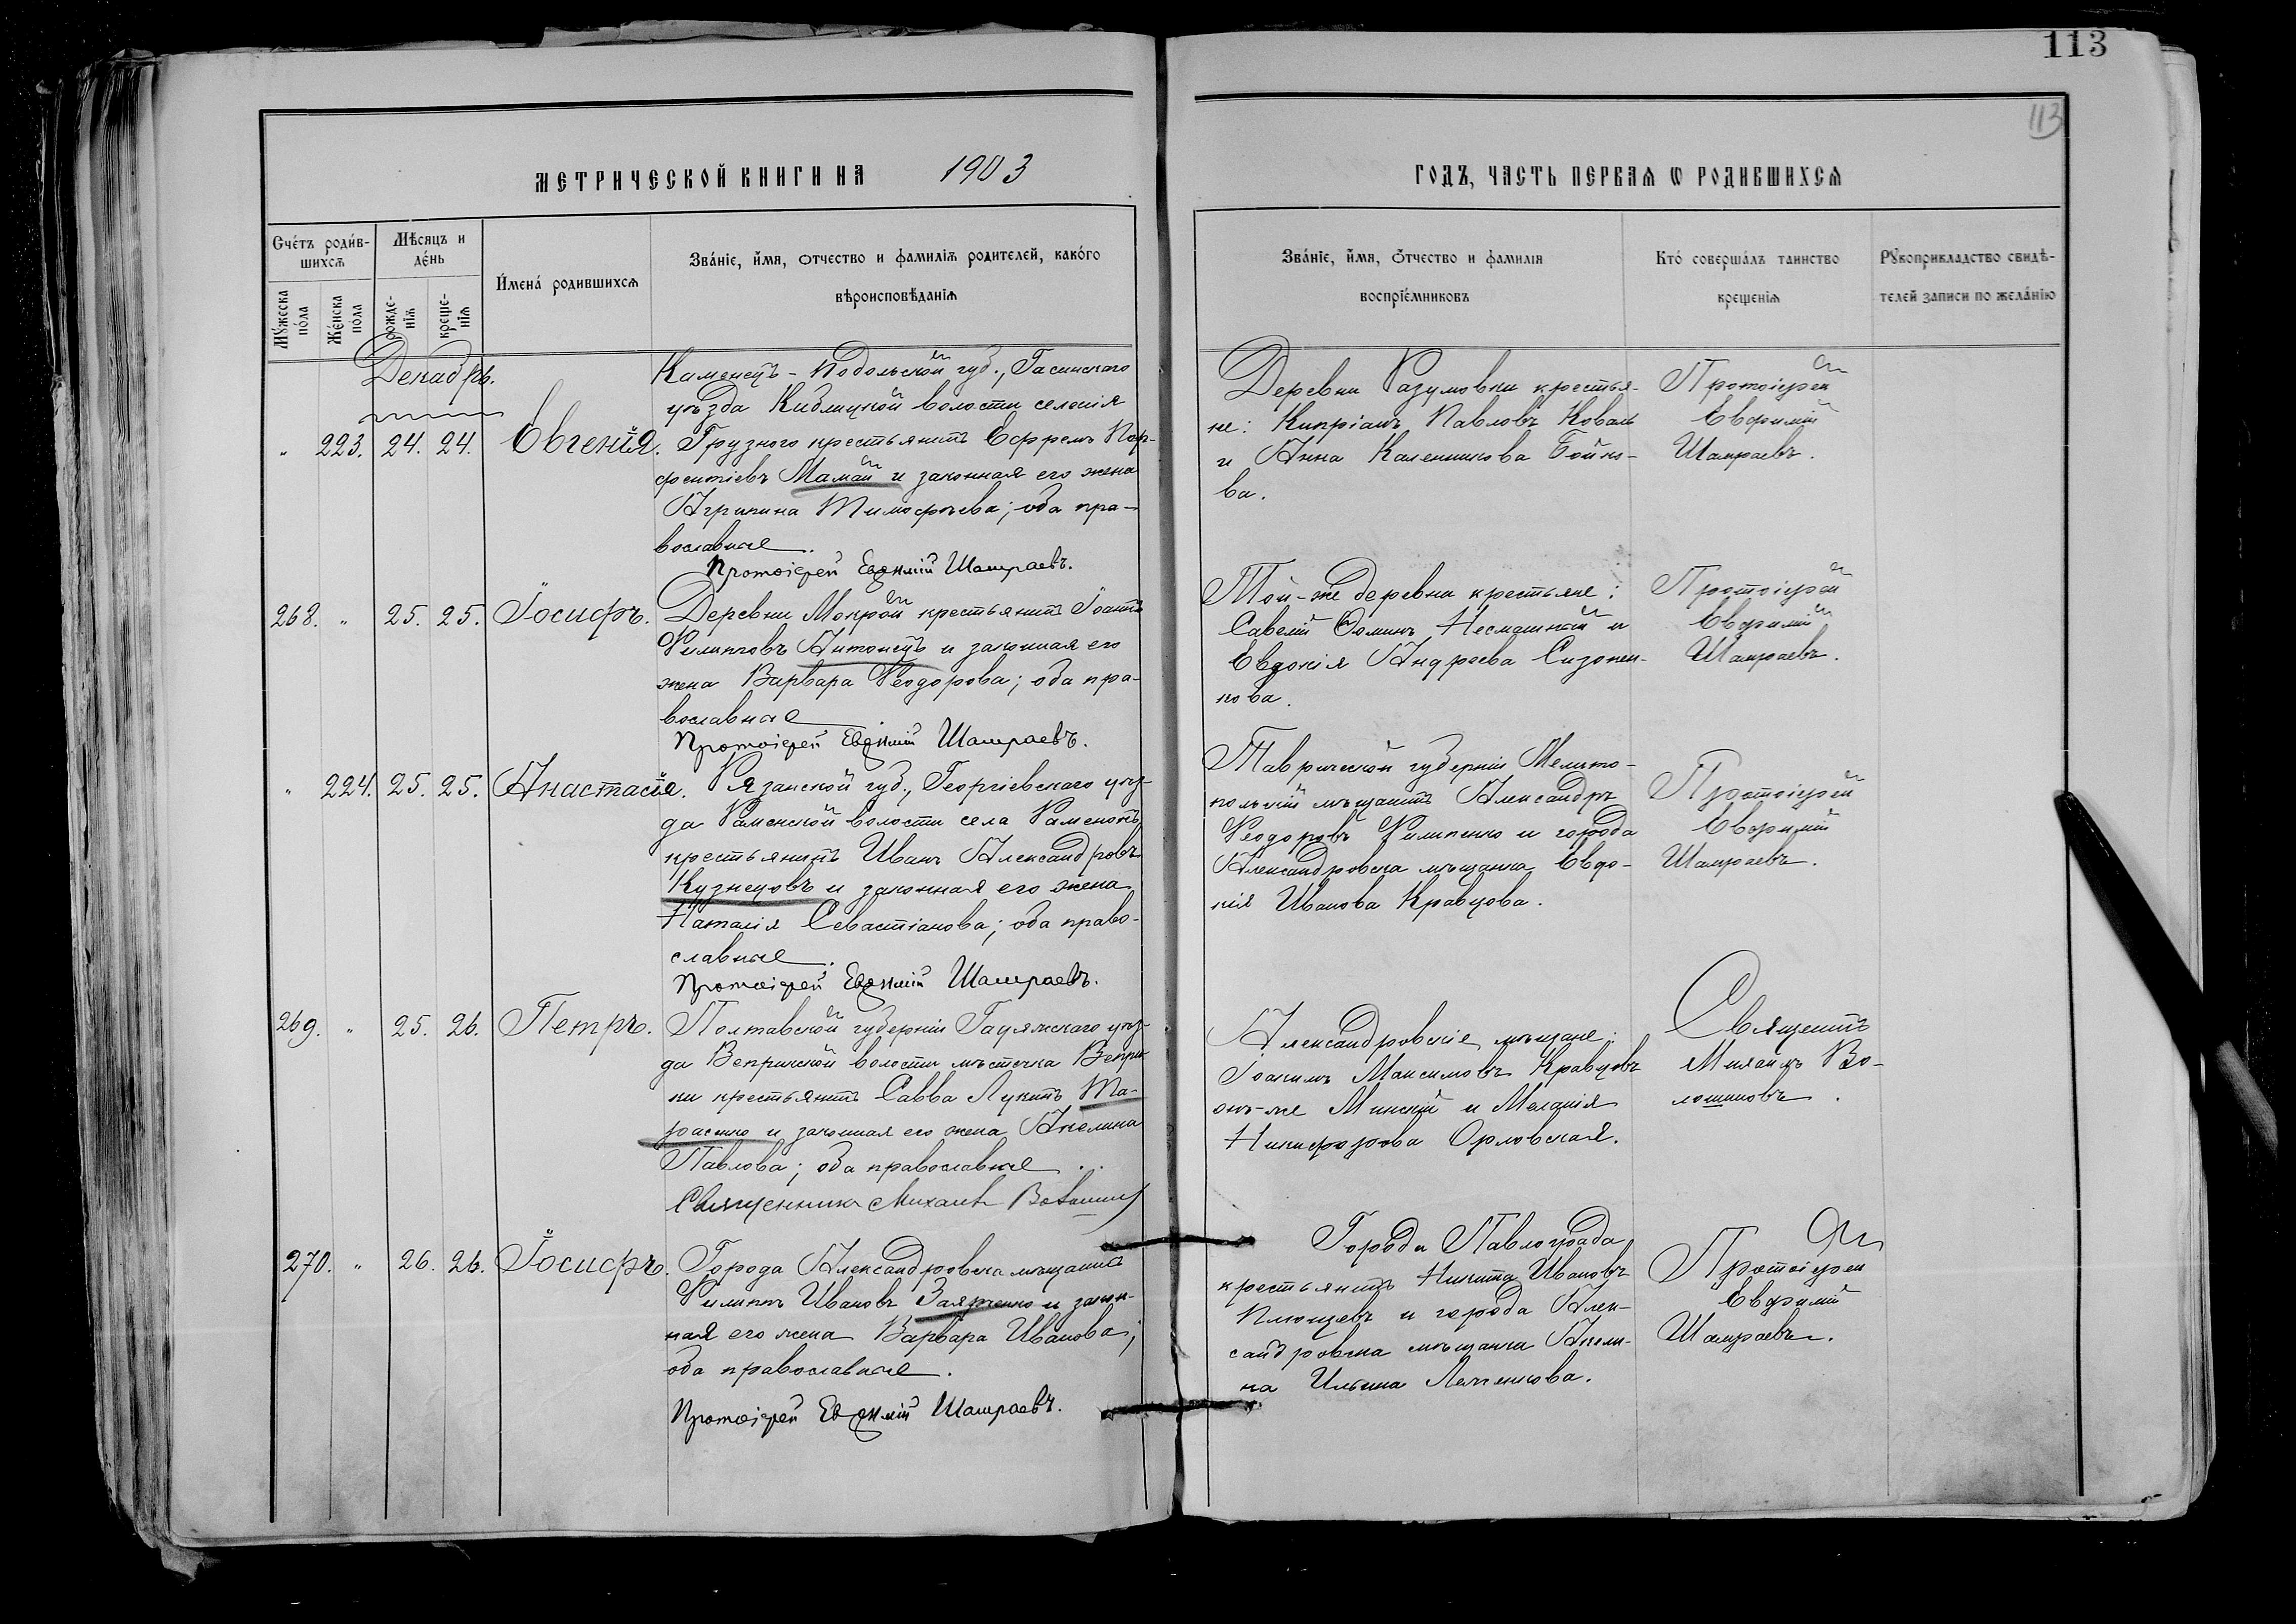 113
113
МЕТРИЧЕСКОЙ КНИГИ НА 1903
ГОДЪ, ЧАСТЬ ПЕРВАЯ Ѡ РОДИВШИХСЯ
Счётъ роди́в-
шихсѧ
Мѣсяцъ и
де́нь
Мꙋ́жеска
по́ла
Же́нска
по́ла
рожде-
нїѧ
креще-
нїѧ
И́мена́ родившихсѧ
Зва́нїе, и́мя, ѻтчество и фамилїѧ родителей, како́го
вѣроисповѣ́данїѧ
Зва́нїе, и́мя, ѻтчество и фамилїя
воспрїе́мниковъ
Кто́ соверша́лъ таинство
крещенїѧ
Рꙋкоприкладство свидѣ-
телей записи по жела́нїю
Декабрь.
" 223. 24. 24. Евгенія.
Каменецъ-Подольской губ., Гасинскаго
уѣзда Кублицкой волости селенія
Грузного крестьянинъ Ефремъ Пар-
фентіевъ Мамай и законная его жена
Агрипина Тимофѣева; оба пра-
вославные.
Протоіерей Евѳимій Шамраевъ.
Деревни Разумовки крестья-
не: Кипріанъ Павловъ Коваль
и Анна Каленникова Бойко-
ва.
Протоіерей
Евфимій
Шамраевъ.
268. " 25. 25. Іосифъ.
Деревни Мокрой крестьянинъ Іоаннъ
Филипповъ Антонецъ и законная его
жена Варвара Ѳеодорова; оба пра-
вославные
Протоіерей Евѳимій Шамраевъ.
Той-же деревни крестьяне:
Савелій Ѳоминъ Несмашный и
Евдокія Андреева Сизонен-
кова.
Протоіерей
Евфимій
Шамраевъ.
" 224. 25. 25. Анастасія.
Рязанской губ., Георгіевскаго уѣз-
да Раменской волости села Раменокъ
крестьянинъ Иванъ Александровъ
Кузнецовъ и законная его жена
Наталія Севастіанова; оба право-
славные.
Протоіерей Евѳимій Шамраевъ.
Таврической губерніи Мелито-
польскій мѣщанинъ Александръ
Ѳеодоровъ Филипенко и города
Александровска мѣщанка Евдо-
кія Иванова Кравцова.
Протоіерей
Евфимій
Шамраевъ.
269. " 25. 26. Петръ.
Полтавской губерніи Гадяжскаго уѣз-
да Веприкской волости мѣстечка Вепри-
ки крестьянинъ Савва Лукинъ Та-
расенко и законная его жена Акелина
Павлова; оба православные.
Священникъ Михаилъ
Александровскіе мѣщане:
Іоакимъ Максимовъ Кравцовъ
онъ-же Минскій и Меланія
Никифорова Орловская.
Священникъ
Михаилъ Во-
лошиновъ.
270. " 26. 26. Іосифъ.
Города Александровска мѣщанинъ
Филиппъ Ивановъ Заяченко и закон-
ная его жена Варвара Иванова;
оба православные.
Протоіерей Евѳимій Шамраевъ.
Города Павлограда
крестьянинъ Никита Ивановъ
Плющевъ и города Алек-
сандровска мѣщанка Акели-
на Ильина
Протоіерей
Евфимій
Шамраевъ.